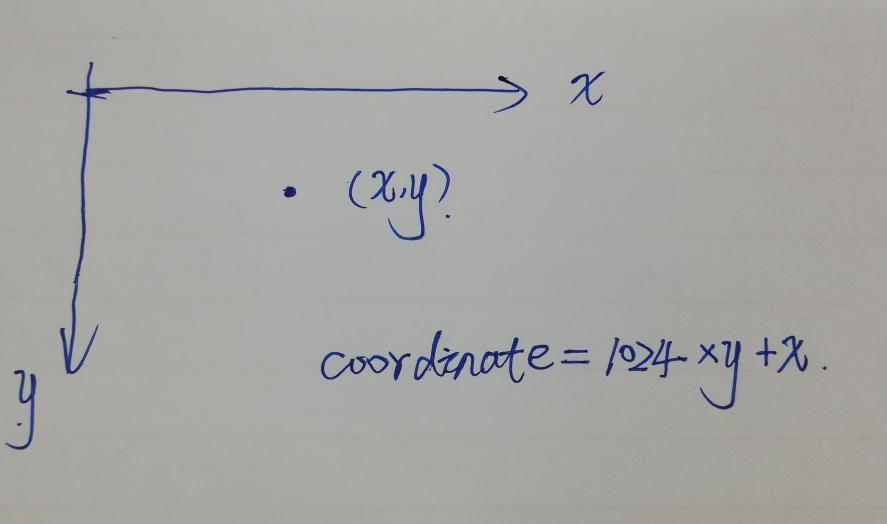 x
(x,y).
coordinate = 1024 × y + x.
y